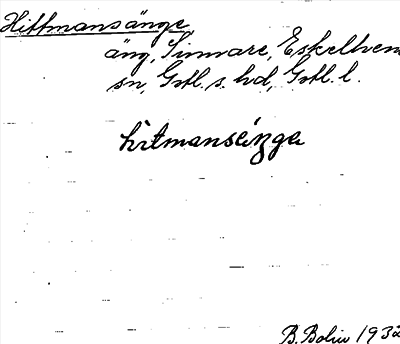 Hittmansänge
äng, Sinnare, Eskelhem
sn, Gotl. s. hd, Gotl. l.
hitmansęŋgə
B. Bolin 1932